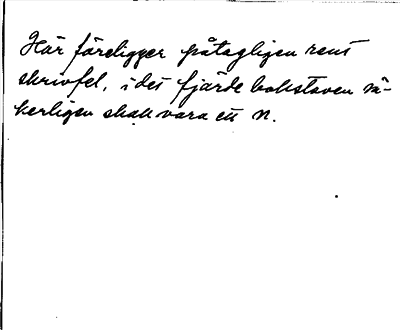 Här föreligger påtagligen rent
skrivfel, i det fjärde bokstaven sä-
kerligen skall vara ett N.